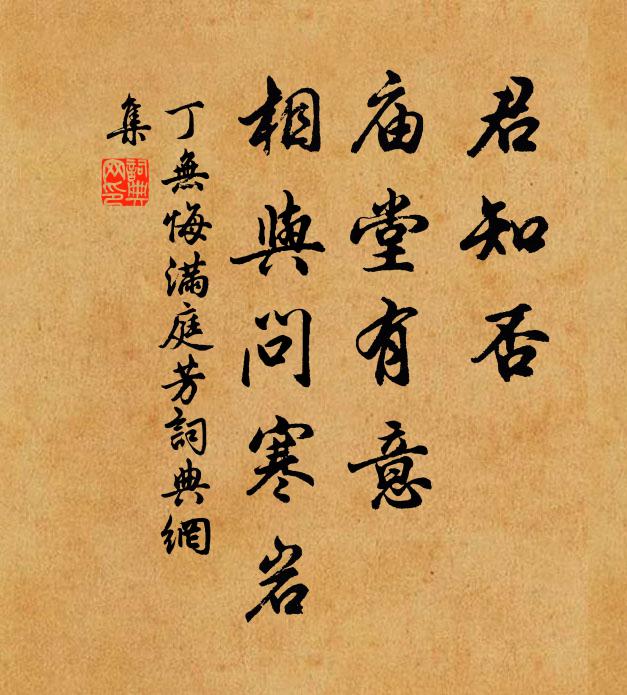 君知否
庙堂有意
相與問寒岩
丁無悔滿庭芳詞典網
集
詞典網印